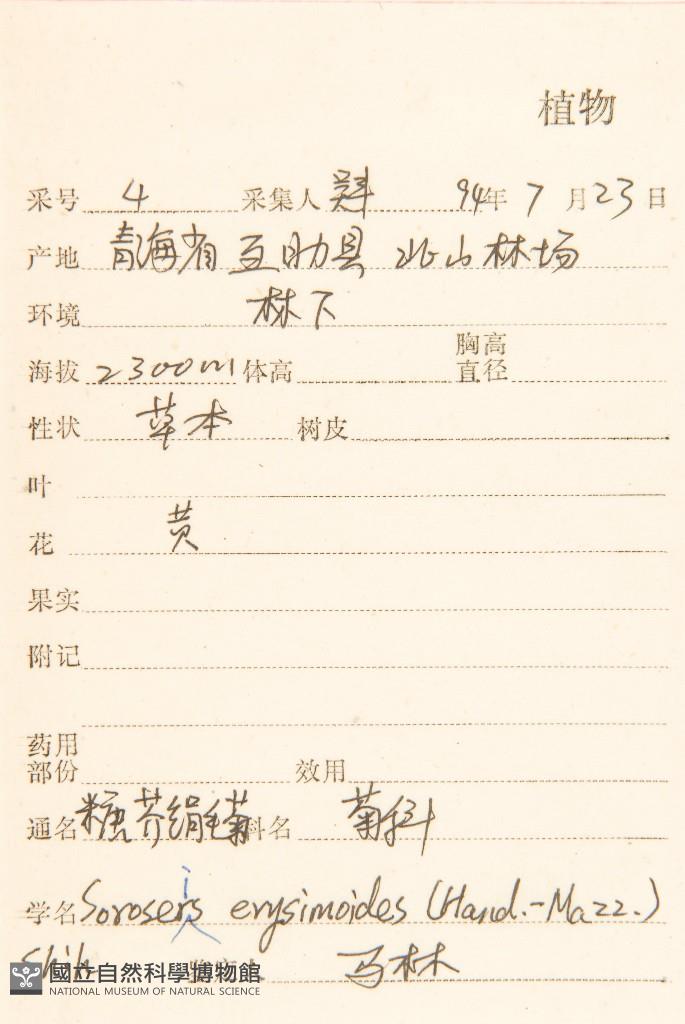 植物
采号 4 采集人 94年 7 月 23 日
产地 青海省 互助县 北山林场
环境 林下
海拔 2300m 体高 胸高直径
性状 草本 树皮
叶
花 黄
果实
附记
药用部份 效用
通名 糖芥绢毛菊 科名 菊科
学名 Soroseris erysimoides (Hand.-Mazz.)
Shih 鉴定人 马林
國立自然科學博物館
NATIONAL MUSEUM OF NATURAL SCIENCE